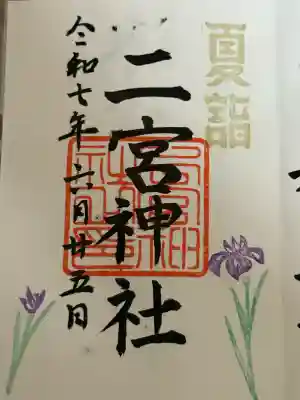 夏詣
二宮神社
令和七年六月廿五日